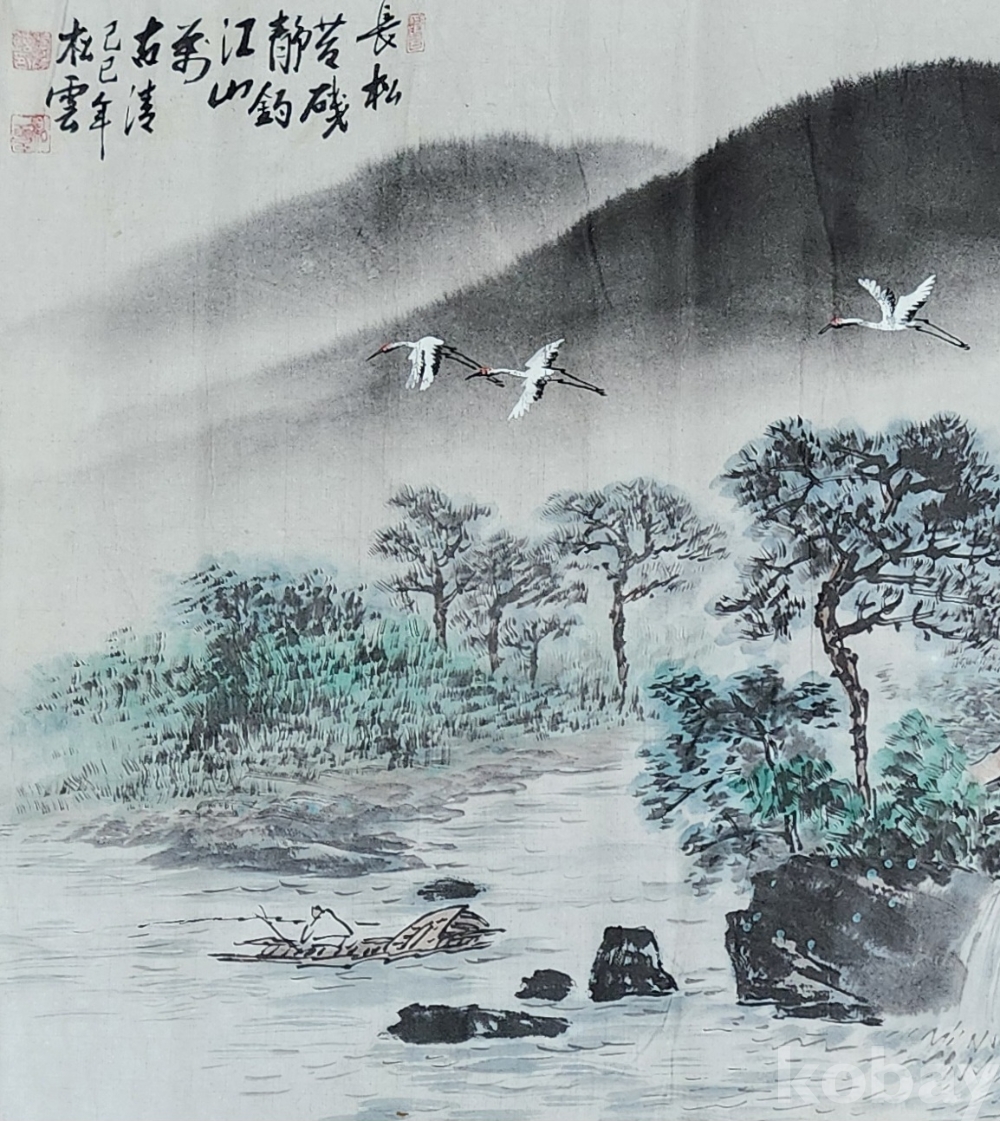 長松
苔磯
静釣
江山
萬
古清
己巳年
松雲
kobay